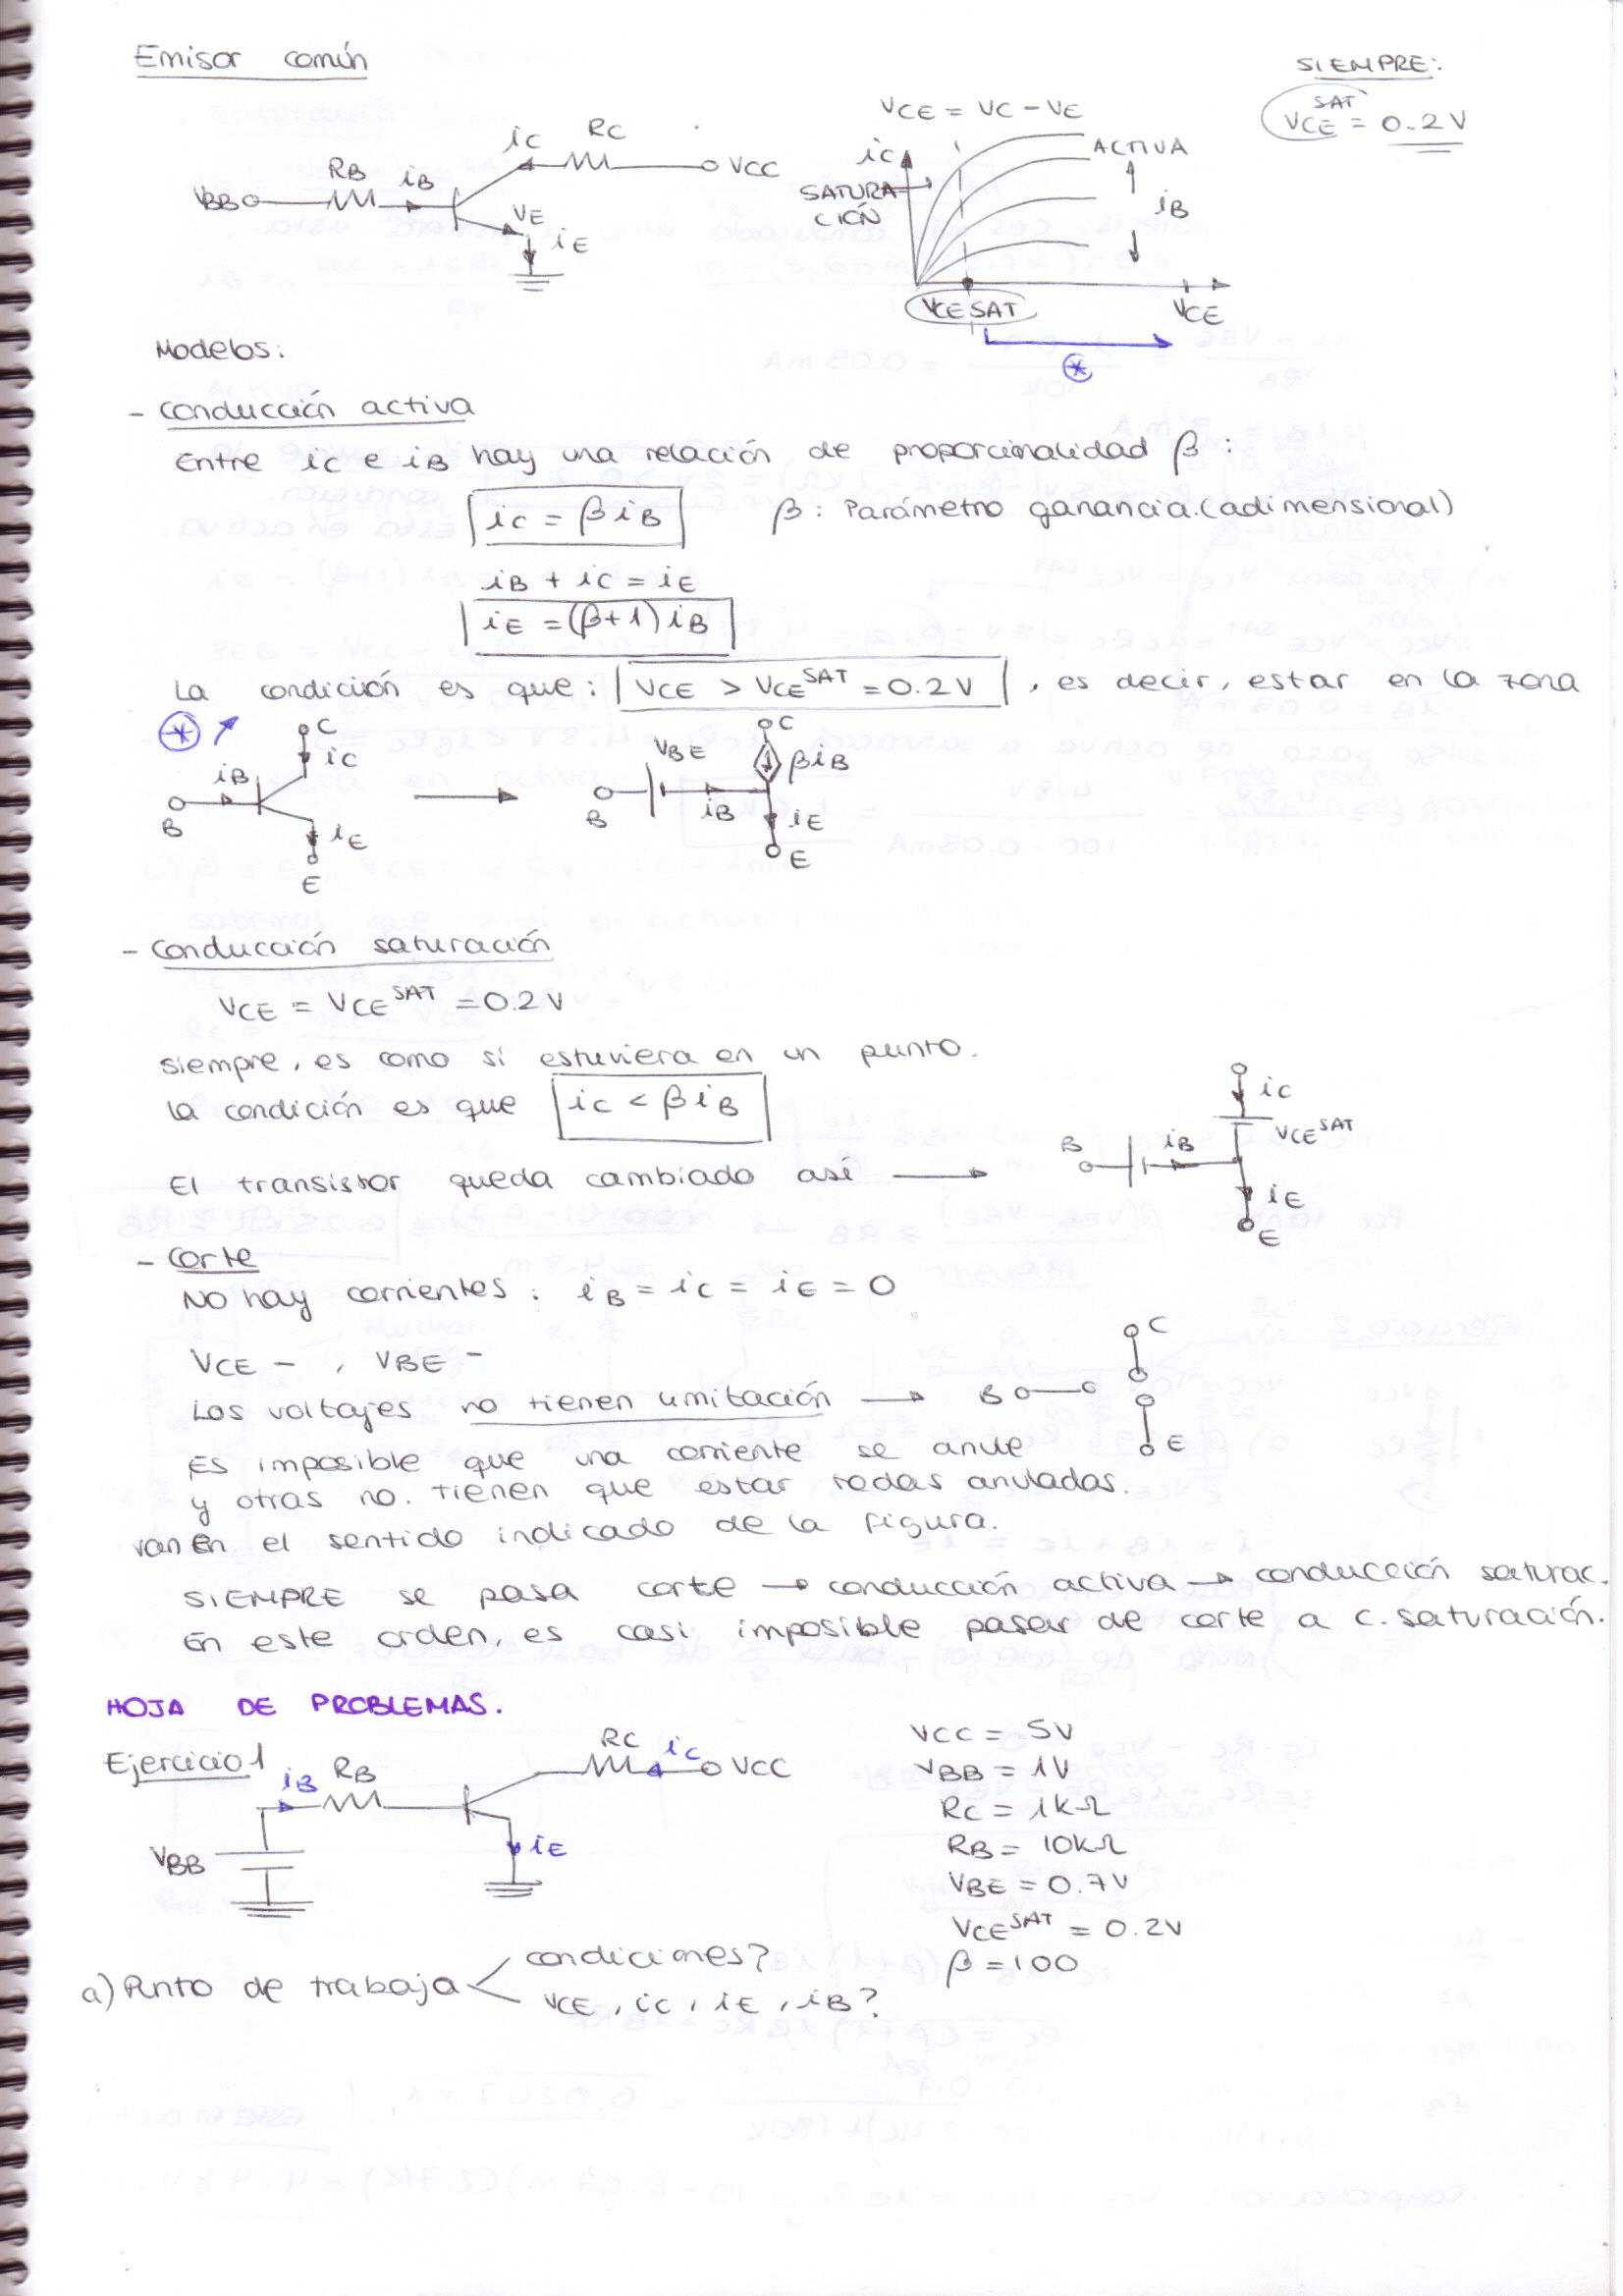 Emisor común
SIEMPRE:
VCE^SAT = 0.2V
VCE = VC - VE
iC
RC
VCC
VBB
RB
iB
VE
iE
iC
SATURA
CIÓN
ACTIVA
iB
VCE SAT
VCE
*
Modelos:
- Conducción activa
Entre iC e iB hay una relación de proporcionalidad β:
iC = βiB
β: Parámetro ganancia. (adimensional)
iB + iC = iE
iE = (β+1)iB
La condición es que: VCE > VCE^SAT = 0.2V, es decir, estar en la zona
*
C
iC
iB
B
iE
E
VBE
C
βiB
B
iB
iE
E
- Conducción saturación
VCE = VCE^SAT = 0.2V
siempre, es como si estuviera en un punto.
La condición es que iC < βiB
El transistor queda cambiado así →
iC
VCE^SAT
B
iB
iE
E
- Corte
No hay corrientes: iB = iC = iE = 0
VCE - , VBE -
Los voltajes no tienen limitación →
C
B
E
Es imposible que una corriente se anule
y otras no. Tienen que estar todas anuladas.
Van en el sentido indicado de la figura.
SIEMPRE se pasa corte → conducción activa → conducción saturac.
En este orden, es casi imposible pasar de corte a c. saturación.
HOJA DE PROBLEMAS.
Ejercicio 1
iB
RB
RC
iC
VCC
VBB
iE
VCC = 5V
VBB = 1V
RC = 1kΩ
RB = 10kΩ
VBE = 0.7V
VCE^SAT = 0.2V
β = 100
a) Pnto de trabajo
condiciones?
VCE, iC, iE, iB?